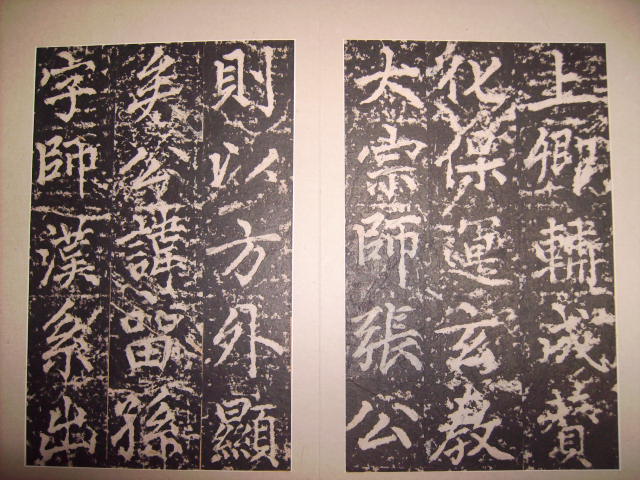 上卿輔成贊
化保運玄教
大宗師張公
則以方外顯
矣公諱留孫
字師漢系出